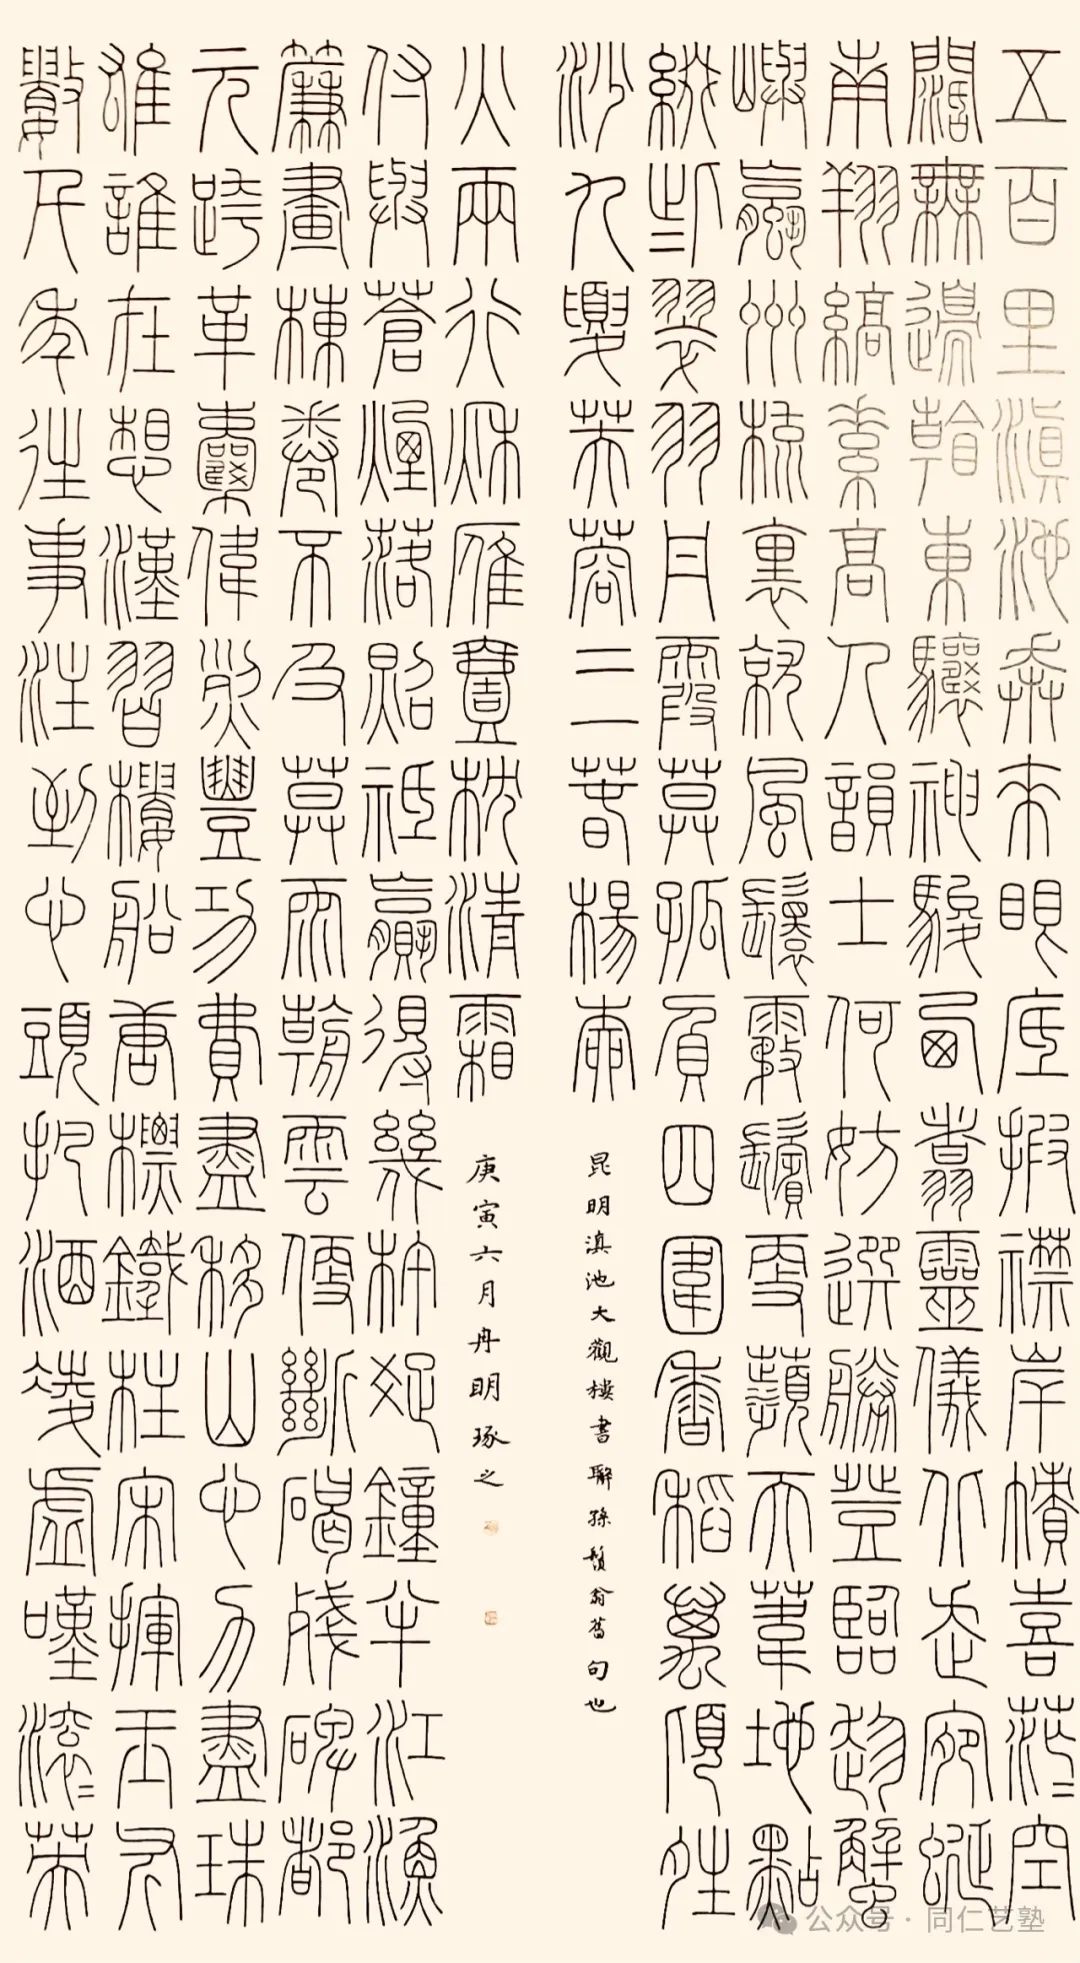 五百里滇池奔來眼底披襟岸幘喜茫=空
闊無邊看東驤神駿西翥靈儀北走蜿蜒
南翔縞素高人韻士何妨選勝登臨趁蟹
嶼蠃州梳裹就風鬟霧鬢更蘋天葦地點
綴些翠羽丹霞莫孤負四圍香稻萬頃晴
沙九夏芙蓉三春楊柳
昆明滇池大觀樓書聯孫髯翁舊句也
數千年往事注到心頭把酒凌虛嘆滾=英
雄誰在想漢習樓船唐標鐵柱宋揮玉斧
元跨革囊偉烈豐功費盡移山心力盡珠
簾畫棟卷不及莫雨朝雲便斷碣殘碑都
付與蒼煙落照祗贏得幾杵疏鐘半江漁
火兩行秋雁壹枕清霜
庚寅六月明琢之
公众号 · 同仁艺塾